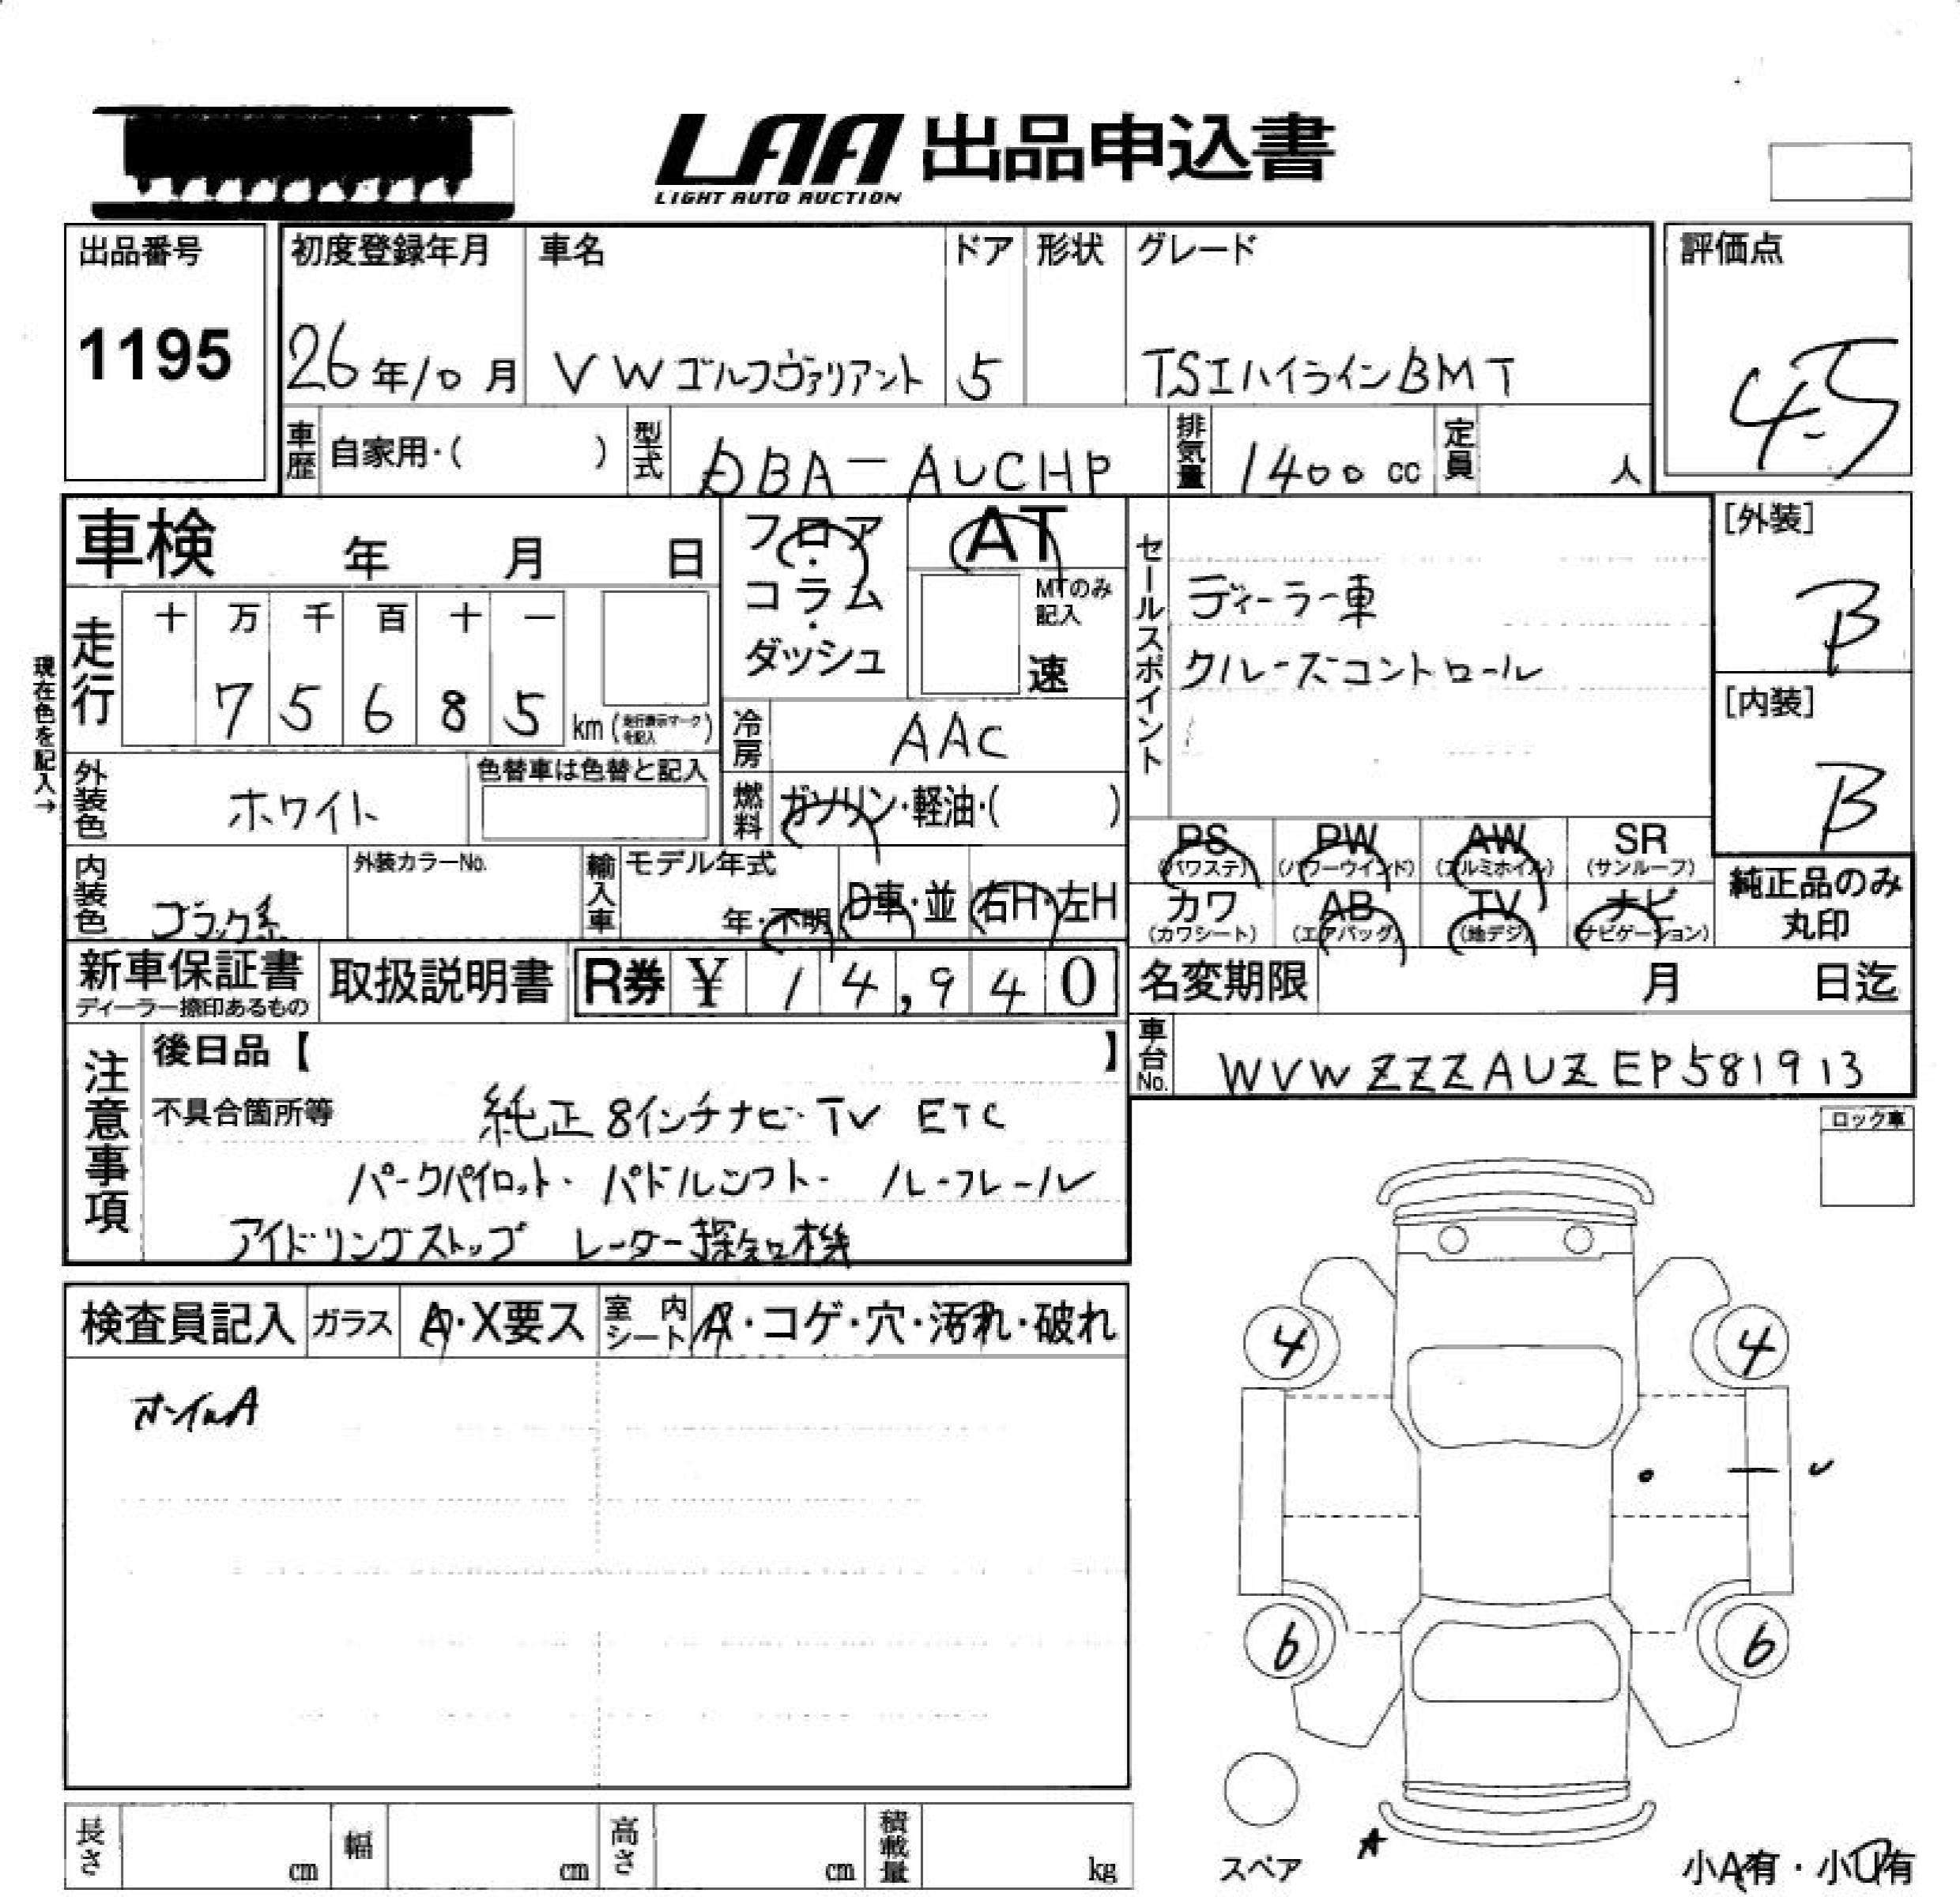 LAA 出品申込書
LIGHT AUTO AUCTION
出品番号 初度登録年月 車名 ドア 形状 グレード 評価点
1195 26年10月 VWゴルフヴァリアント 5 TSIハイラインBMT 4.5
車歴 自家用・( ) 型式 DBA-AUCHP 排気量 1400cc 定員 人
車検 年 月 日 フロア・コラム・ダッシュ AT
MTのみ記入 速
セールスポイント
ディーラー車
クルーズコントロール
[外装]
B
[内装]
B
現在色を記入→
走行 十 万 千 百 十 一
7 5 6 8 5 km (走行表示マークを記入)
冷房 AAC
外装色 ホワイト 色替車は色替と記入
燃料 ガソリン・軽油・( )
PS (パワステ) PW (パワーウインド) AW (アルミホイル) SR (サンルーフ)
カワ (カワシート) AB (エアバッグ) TV (地デジ) ナビ (ナビゲーション)
純正品のみ
丸印
内装色 ブラック系 外装カラーNo. 輸入車 モデル年式 年・不明 D車・並 右H・左H
新車保証書 取扱説明書 R券 ¥ 14,940 名変期限 月 日迄
ディーラー捺印あるもの
車台No. WVWZZZAUZEP581913
注意事項
後日品【 】
不具合箇所等 純正8インチナビ・TV ETC
パークパイロット・パドルシフト・ルーフレール
アイドリングストップ レーダー探知機
ロック車
検査員記入 ガラス A・X要ス 室内シート A・コゲ・穴・汚れ・破れ
4 4
6 6
スペア A 小A有・小U有
長さ cm 幅 cm 高さ cm 積載量 kg